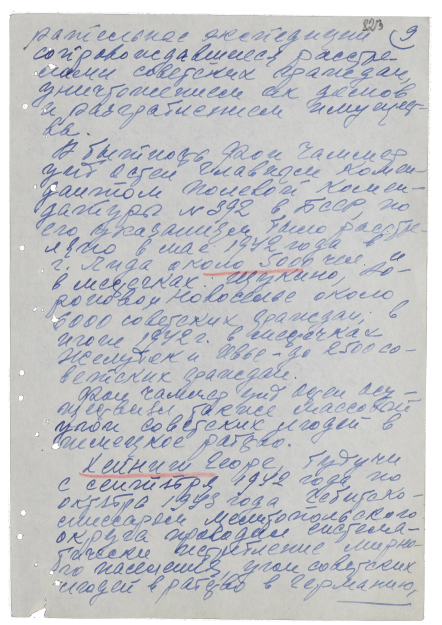 823 9
рательные экспедиции
сопровождавшиеся расстре-
лами советских граждан,
уничтожением их домов
и разграблением имущест-
ва.
В бытность фон Чаммер
унд Остен Главным комен-
дантом полевой комен-
датуры № 392 в БССР, по
его указаниям было расстре-
ляно в мае 1942 года в
г. Лида около 5000 чел. и
в местечках Щукино,
Новоселье около
6000 советских граждан, в
1942 г. в местечках
Желудок и Ивье - до 2500 со-
ветских граждан.
Фон Чаммер унд Остен осу-
ществлял также массовый
угон советских людей в
немецкое рабство.
Хейниш Георг, будучи
с сентября 1942 года по
октябрь 1943 года Гебитско-
миссаром Мелитопольского
округа проводил система-
тически истребление мирно-
го населения, угон советских
людей в рабство в Германию,